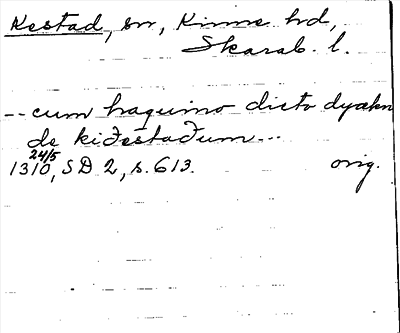 Kestad, sn, Kinne hd,
Skarab. l.
-- cum haquino dicto dyækn
de kiðestaðum ---
1310 24/5, SD 2, s. 613. orig.